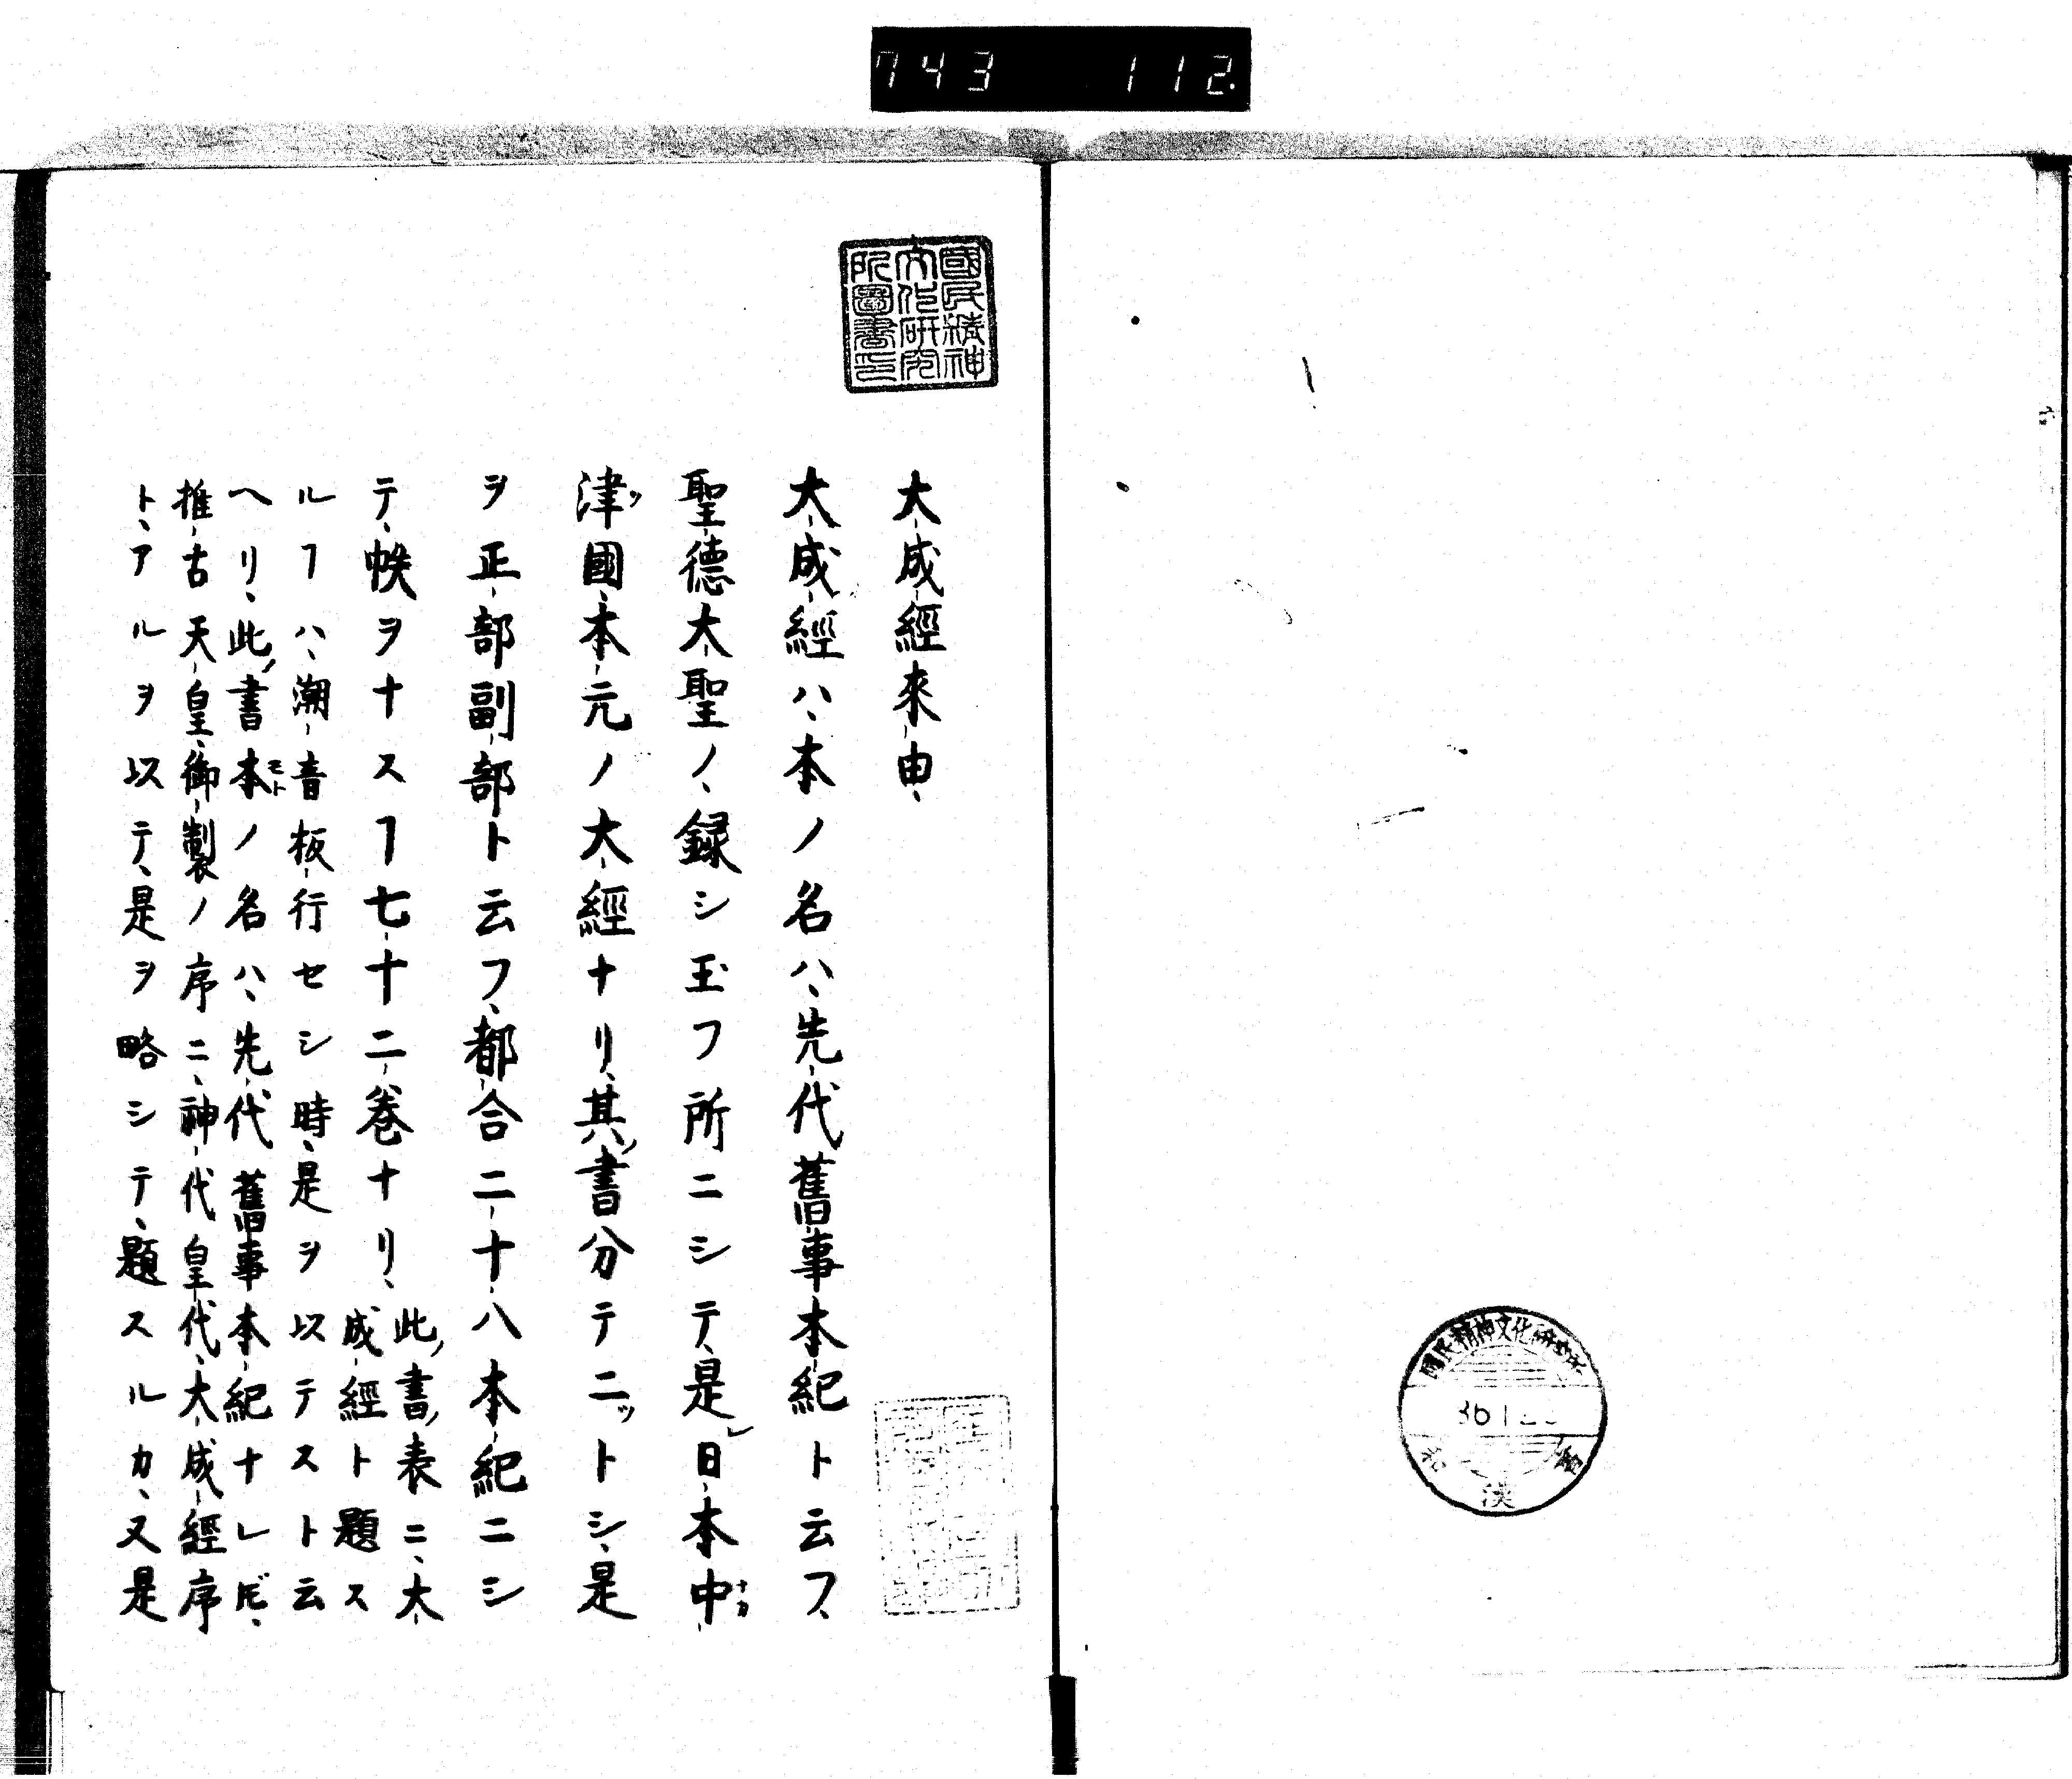 743 112.
國民精神
文化研究
所圖書印
大成經來由、
大成經ハ、本ノ名ハ、先代舊事本紀ト云フ、
聖德大聖ノ、録シ玉フ所ニシテ、是レ日本中ナカ
津ツ國、本元ノ大經ナリ、其ノ書分テ二ツトシ、是
ヲ正部副部ト云フ、都合二十八本紀ニシ
テ、帙ヲナスヿ七十二巻ナリ、
此ノ書ノ表ニ、大
成經ト題ス
ルヿハ、潮音板行セシ時、是ヲ以テスト云
ヘリ、此ノ書本モトノ名ハ、先代舊事本紀ナレ𪜈、
推古天皇、御製ノ序ニ、神代皇代、大成經序
ト、アルヲ以テ、是ヲ略シテ、題スルカ、又是
國民精神文化研究所
36.1
漢